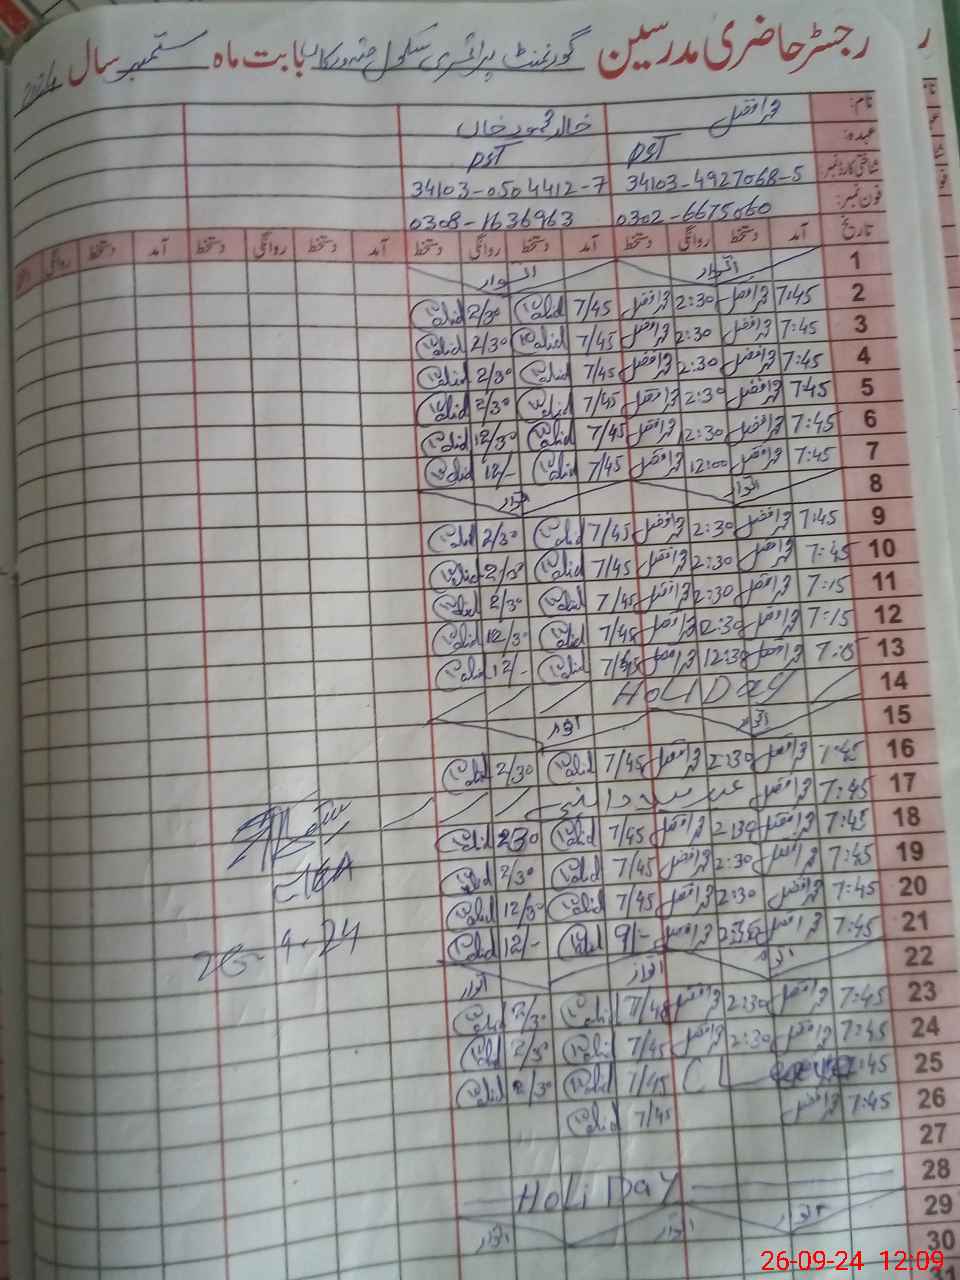 رجسٹر حاضری مدرسین گورنمنٹ پرائمری سکول بابت ماہ ستمبر سال 2024
نام:
خالد محمود خاں
عہدہ: PST PST
شناختی کارڈ نمبر: 34103-4927068-5 34103-0504412-7
فون نمبر: 0302-6675060 0308-1636963
تاریخ آمد دستخط روانگی دستخط آمد دستخط روانگی دستخط آمد دستخط روانگی دستخط آمد دستخط روانگی
1 اتوار اتوار
2 7:45 محمد افضل 2:30 محمد افضل 7/45 Khalid 2/30 Khalid
3 7:45 محمد افضل 2:30 محمد افضل 7/45 Khalid 2/30 Khalid
4 7:45 محمد افضل 2:30 محمد افضل 7/45 Khalid 2/30 Khalid
5 7:45 محمد افضل 2:30 محمد افضل 7/45 Khalid 2/30 Khalid
6 7:45 محمد افضل 12:30 محمد افضل 7/45 Khalid 12/30 Khalid
7 7:45 محمد افضل 12:00 محمد افضل 7/45 Khalid 12/- Khalid
8 اتوار اتوار
9 7:45 محمد افضل 2:30 محمد افضل 7/45 Khalid 2/30 Khalid
10 7:45 محمد افضل 2:30 محمد افضل 7/45 Khalid 2/30 Khalid
11 7:15 محمد افضل 2:30 محمد افضل 7/45 Khalid 2/30 Khalid
12 7:15 محمد افضل 2:30 محمد افضل 7/45 Khalid 12/30 Khalid
13 محمد افضل 12:30 محمد افضل 7/45 Khalid 12/- Khalid
14 HOLIDAY
15 اتوار اتوار
16 7:45 محمد افضل 2:30 محمد افضل 7/45 Khalid 2/30 Khalid
17 7:45 محمد افضل عید
18 7:45 محمد افضل 2:30 محمد افضل 7/45 Khalid 2/30 Khalid
19 7:45 محمد افضل 2:30 محمد افضل 7/45 Khalid 2/30 Khalid
20 7:45 محمد افضل 2:30 محمد افضل 7/45 Khalid 12/30 Khalid
21 7:45 محمد افضل محمد افضل 9/- Khalid 12/- Khalid
22 اتوار اتوار اتوار
23 7:45 محمد افضل 2:30 محمد افضل 7/45 Khalid 2/30 Khalid
24 7:45 محمد افضل 2:30 محمد افضل 7/45 Khalid 2/30 Khalid
25 7:45 CL 7/45 Khalid 2/30 Khalid
26 7:45 محمد افضل 7/45 Khalid
27
28 HOLIDAY
29 اتوار اتوار اتوار
30
31
26-09-24 12:09